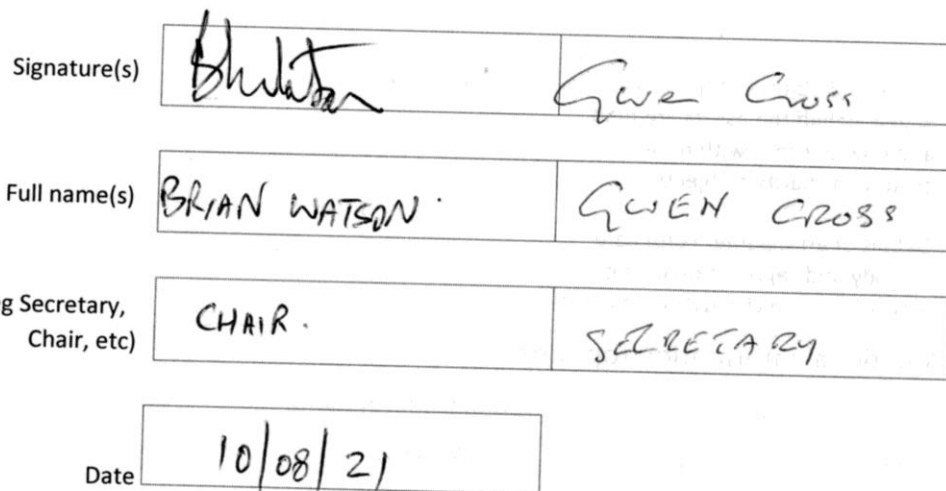 Signature(s) BWatson Gwen Cross
Full name(s) BRIAN WATSON. GWEN CROSS
g Secretary, CHAIR. SECRETARY
Chair, etc)
Date 10/08/21